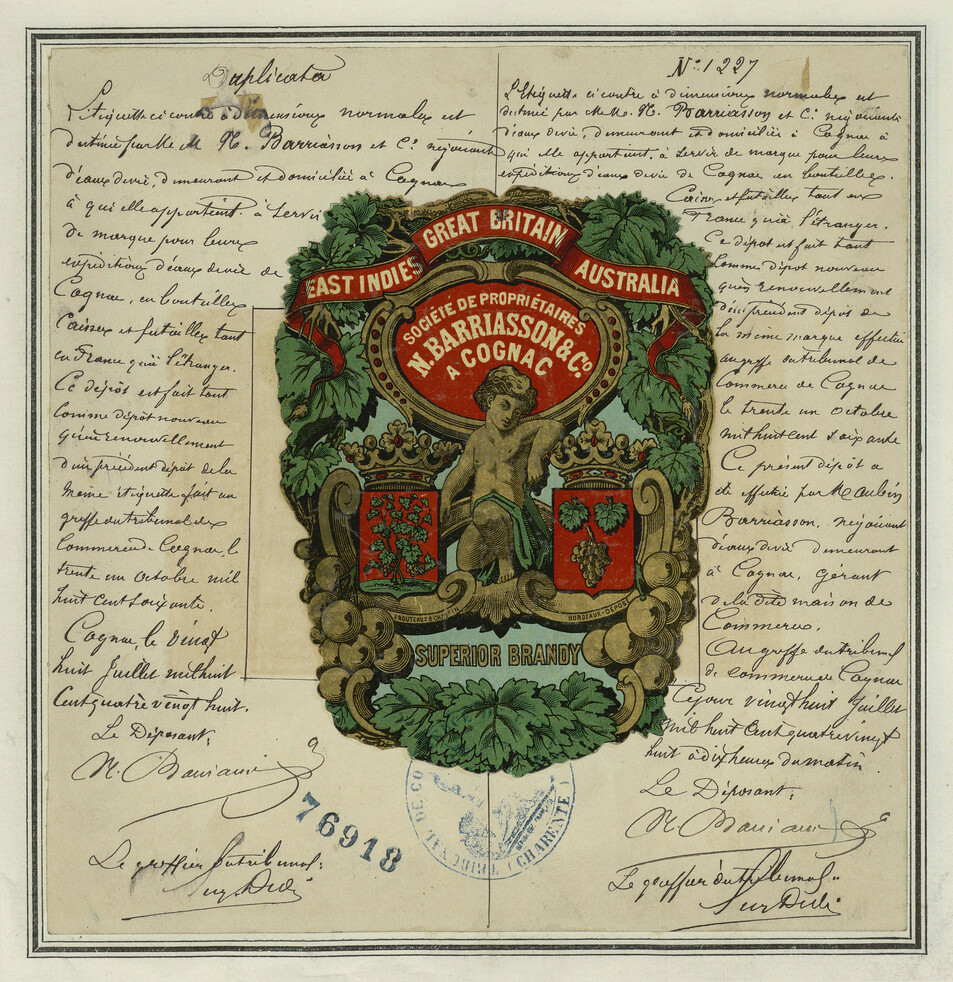 Duplicata
L'Etiquette ci contre à dimensions normales et
destinée par Me M N. Barriasson et Cie négociants
d'eaux de vie, demeurant et domiciliés à Cognac
à qui elle appartient à servir
de marque pour leurs
expéditions d'eaux de vie de
Cognac, en bouteilles
Caisses et futailles tant
en France qu'à l'étranger.
Ce dépôt est fait tant
comme dépôt nouveau
qu'en Renouvellement
d'un précédent dépôt de la
même étiquette fait au
greffe du tribunal de
Commerce de Cognac, le
trente un Octobre mil
huit cent soixante.
Cognac, le vingt
huit Juillet mil huit
Cent quatre vingt huit.
Le Déposant,
N. Barriasson
Le greffier du tribunal:
No 1227
L'Etiquette ci contre à dimensions normales et
destinée par M.M. N. Barriasson et Cie négociants
d'eaux de vie, demeurant et domiciliés à Cognac à
qui elle appartient, à servir de marque pour leurs
expéditions d'eaux de vie de Cognac en bouteilles.
Caisses et futailles tant en
France qu'à l'étranger.
Ce dépôt est fait tant
comme dépôt nouveau
qu'en Renouvellement
d'un précédent dépôt de
la même marque effectué
au greffe du tribunal de
Commerce de Cognac
le trente un Octobre
mil huit cent soixante
Ce présent dépôt a
été effectué par M Aubin
Barriasson, négociant
d'eaux de vie demeurant
à Cognac, gérant
de la dite maison de
Commerce.
Au greffe du tribunal
de commerce de Cognac
Ce jour vingt huit Juillet
mil huit cent quatre vingt
huit à dix heures du matin.
Le Déposant:
N. Barriasson
Le greffier du tribunal:
GREAT BRITAIN
EAST INDIES
AUSTRALIA
SOCIÉTÉ DE PROPRIÉTAIRES
N. BARRIASSON & Co.
A COGNAC
PROUTEAUX & CHAPIN
BORDEAUX-DÉPOSÉ
SUPERIOR BRANDY
76918
TRIBUNAL DE CO
(CHARENTE)